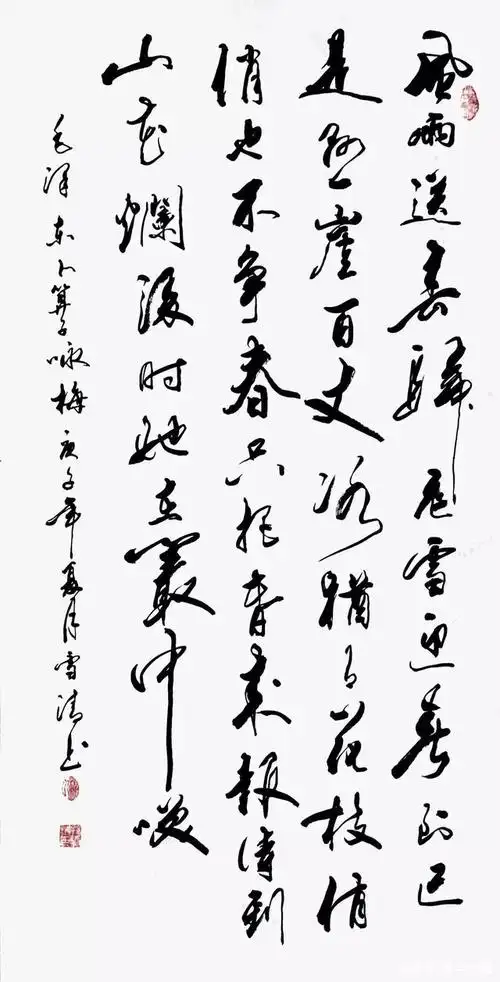 風雨送春歸飛雪迎春到已
是懸崖百丈冰猶有花枝俏
俏也不争春只把春來報待到
山花爛漫时她在叢中咲
毛泽东卜算子咏梅庚子年夏月雪清书